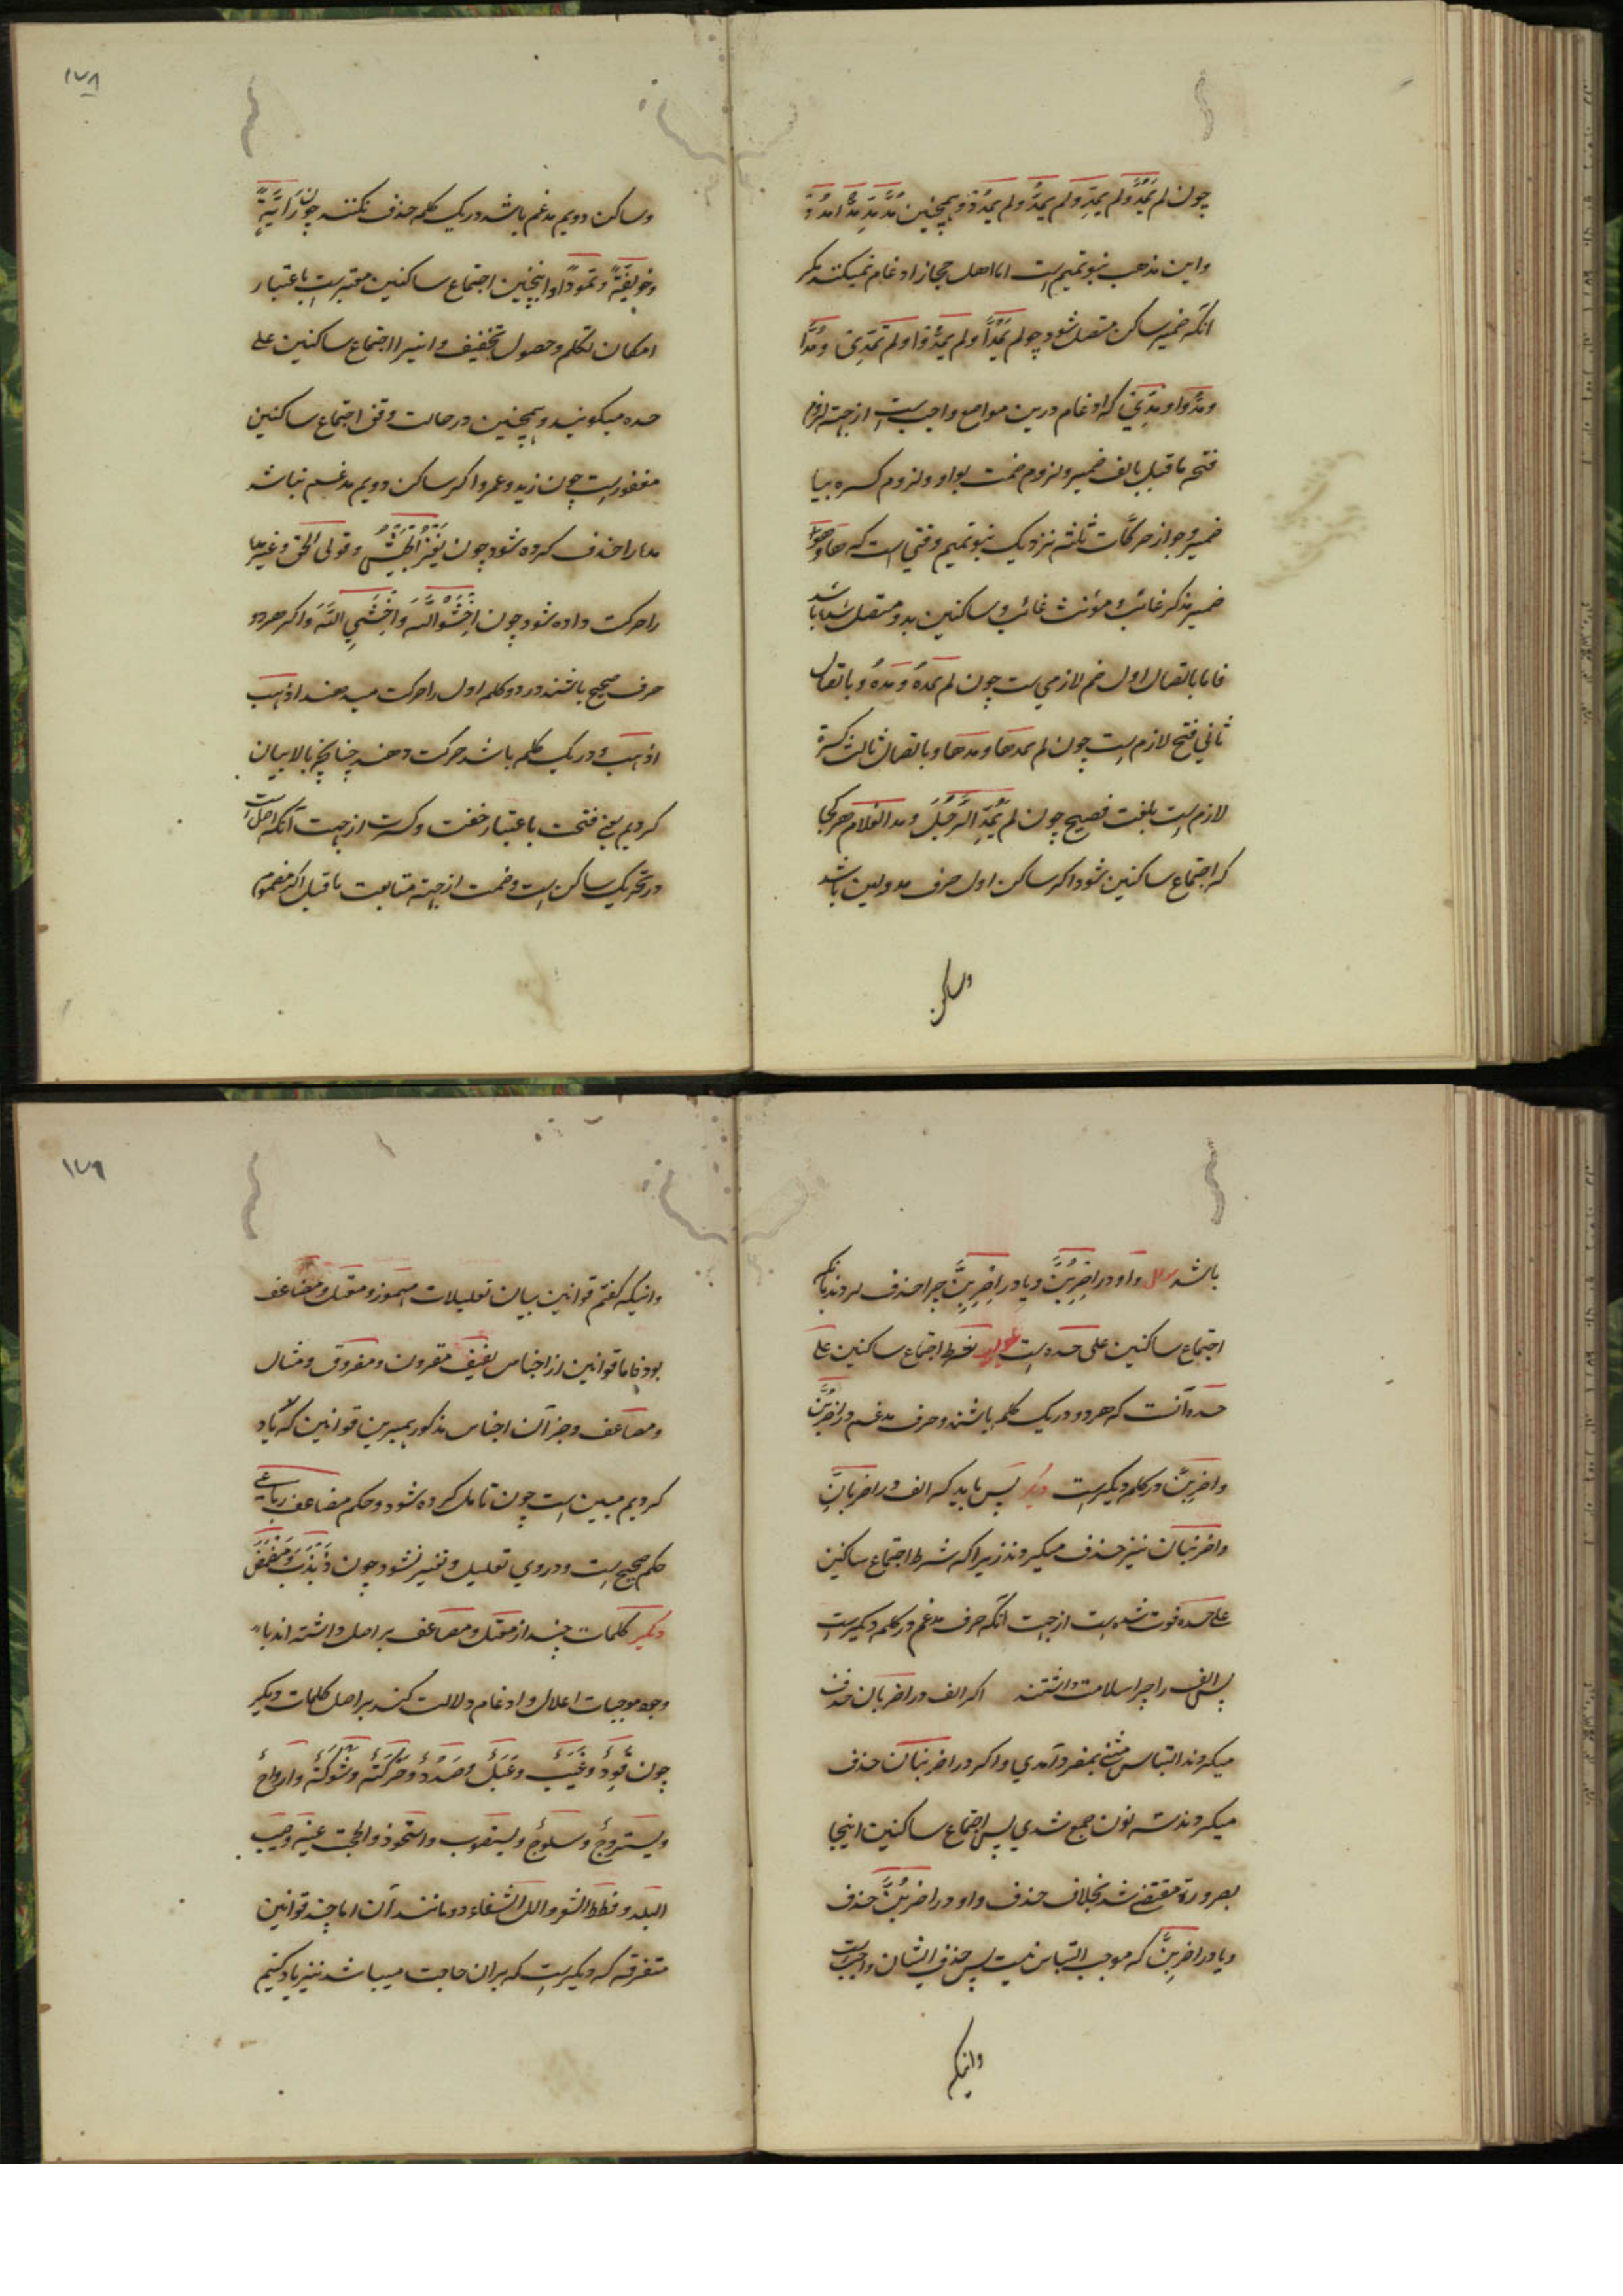 چون لم يَمُدَّ و لم يمدِّ و لم يمدُّ و لم يمدُدْ و همچنین مُدَّ مُدِّ مُدُّ امدُدْ
و این مذهب بنو تمیم است اما اهل حجاز ادغام نمیکنند مکر
انکه ضمیر ساکن متصل شود چو لم يَمُدَّا و لم يمُدُّوا و لم تمُدِّي و مُدَّا
و مدُّوا و مدِّي که ادغام درین مواضع واجب است از جهة لزوم
فتح ماقبل بالف ضمیر و لزوم ضمت بواو و لزوم کسره بیا
ضمیر و جواز حرکات ثلثه نزدیک بنو تمیم وقتی است که ها و هو
ضمیر مذکر غائب و مؤنث غائب و ساکنین بدو متصل نباشد
فاما باتصال اول ضم لازمی ست چون لم یمدهُ و مدهُ و باتصال
ثانی فتح لازم است چون لم یمدها و مدها و باتصال ثالث کسرة
لازم است بلغت فصیح چون لم يَمُدِّ الرَّجُلَ و مد الغلام هر کجا
که اجتماع ساکنین شود اکر ساکن اول حرف مد و لین باشد
وساکن
۱۷۸
و ساکن دویم مدغم باشد در یک کلمه حذف نکنند چون رَادَّةٌ
و خویفّةٌ و تمودّ و اینچنین اجتماع ساکنین معتبر ست باعتبار
امکان تکلم و حصول تخفیف و اینرا اجتماع ساکنین علی
حده میکویند و همچنین در حالت وقف اجتماع ساکنین
مغفور است چون زید و عمرو اکر ساکن دویم مدغم نباشد
مدار حذف کرده شود چون یغز الجیش و قولی الحق و غیر مد
را حرکت داده شود چون اِخْشَوُا اللّهَ وَاخْشَيِ اللّهَ و اکر هر دو
حرف صحیح باشند در دو کلمه اول را حرکت میدهند اذهب
اذهب و در یک کلمه باشد حرکت دهند چنانچه بالا بیان
کردیم یعنی فتحت باعتبار خفت و کسرت از جهت آنکه اصل است
در تحریک ساکن است و ضمت از جهة متابعت ماقبل اکر مضموم
باشد سوال واو در اضربُنَّ و یا در اضربِنَّ چرا حذف کردند بانکه
اجتماع ساکنین علی حده است جواب شرط اجتماع ساکنین علی
حده آنست که هر دو در یک کلمه باشند و حرف مدغم در اضربُنَّ
و اضربِنَّ در کلمه دیکر ست دیکر پس باید که الف در اضربانِّ
و اضربنانّ نیز حذف میکردند زیرا که شرط اجتماع ساکنین
علی حده فوت شده ست از جهت آنکه حرف مدغم در کلمه دیکر ست
پس الف را چرا سلامت داشتند اکر الف در اضربان حذف
میکردند التباس مثنی بمفرد آمدی و اکر در اضربنان حذف
میکردند سه نون جمع شدی پس اجتماع ساکنین اینجا
بضرورة مقتضی شد بخلاف حذف واو در اضربُنَّ حذف
و یا در اضربِنَّ که موجب التباس نیست پس حذف ایشان واجب است
وانیکه
۱۷۹
وانیکه کفتم قوانین بیان تعلیلات مهموز و معتل و مضاعف
بود فاما قوانین از اجناس لفیف مقرون و مفروق و مثال
و مضاعف و جز آن اجناس مذکور همبرین قوانین که یاد
کردیم مبین است چون تامل کرده شود و حکم مضاعف رباعی
حکم صحیح است و در وی تعلیل و تغییر نشود چون ذَبْذَبَ و مَضْمَضَ
دیکر کلمات چند از معتل و مضاعف بر اصل داشته اند با
وجود موجبات اعلال و ادغام دلالت کند بر اصل کلمات دیکر
چون قَوِدٌ و غَيَبٌ و عَبَلٌ و صَدَدٌ و حَرَكَةٌ و شَوْكَةٌ و ارواح
و یستروح و سلوج و یستصوب و استحوذ و لححت عینه و ضبب
البلد و قطط الشعر و الل السقاء و مانند آن اما چند قوانین
متفرقه که دیکر ست که بران حاجت میباشد نیز یاد کنیم